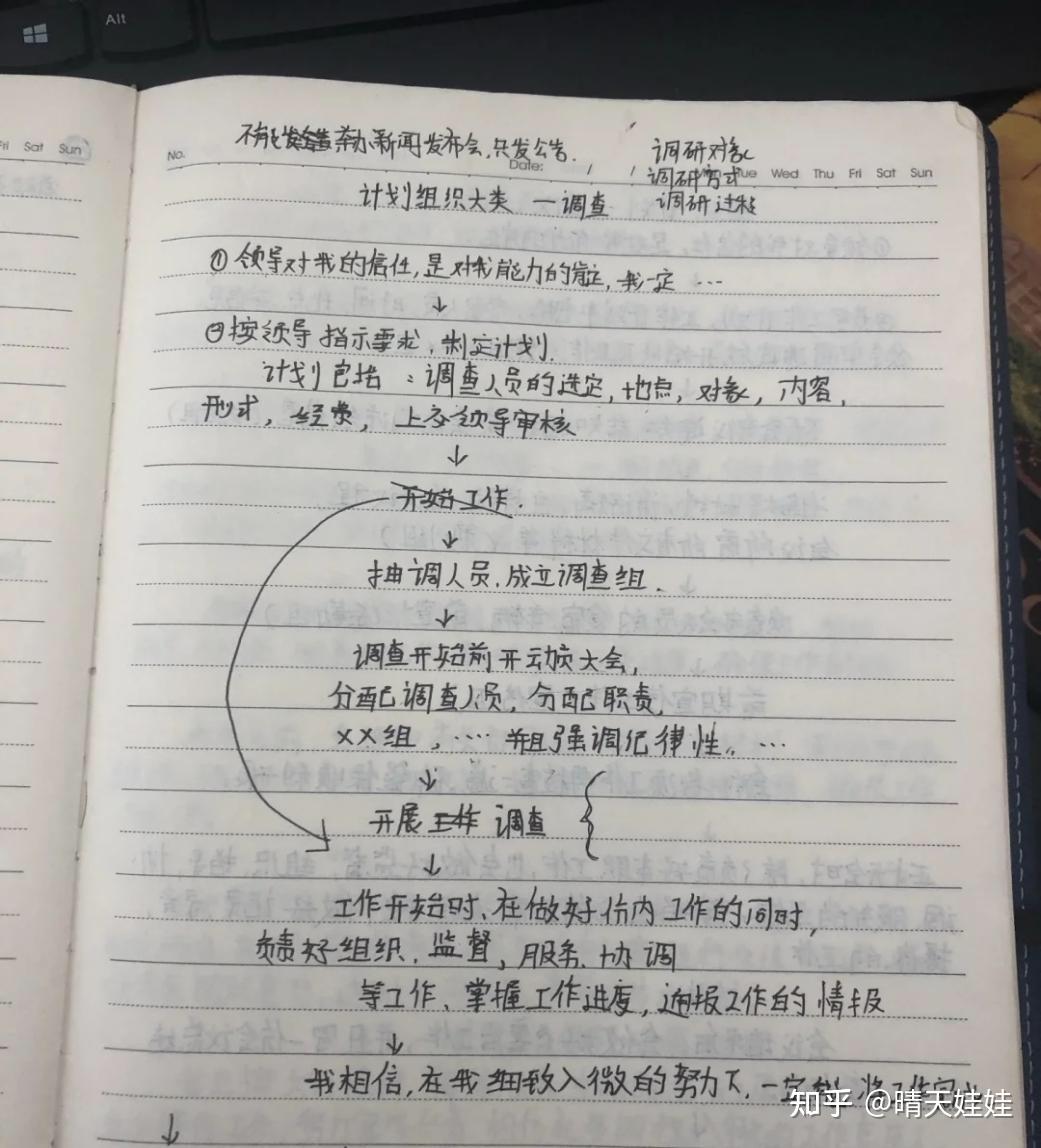 Alt
Fri Sat Sun
不能举办新闻发布会,只发公告.
调研对象
No.
Date: / /
调研方式 Tue Wed Thu Fri Sat Sun
计划组织大类 一调查
调研过程
① 领导对我的信任,是对我能力的肯定,我一定 …
↓
②按领导指示要求,制定计划.
计划包括:调查人员的选定,地点,对象,内容,
形式,经费,上交领导审核
↓
开始工作.
↓
抽调人员.成立调查组.
↓
调查开始前开动员大会,
分配调查人员,分配职责,
XX组,…… 并且强调纪律性。…
↓
开展工作 调查 {
↓
工作开始时、在做好份内工作的同时,
负责好组织.监督,服务.协调
等工作、掌握工作进度,通报工作的情报
↓
我相信,在我细致入微的努力下,一定能 将工作完
↓
知乎 @晴天娃娃